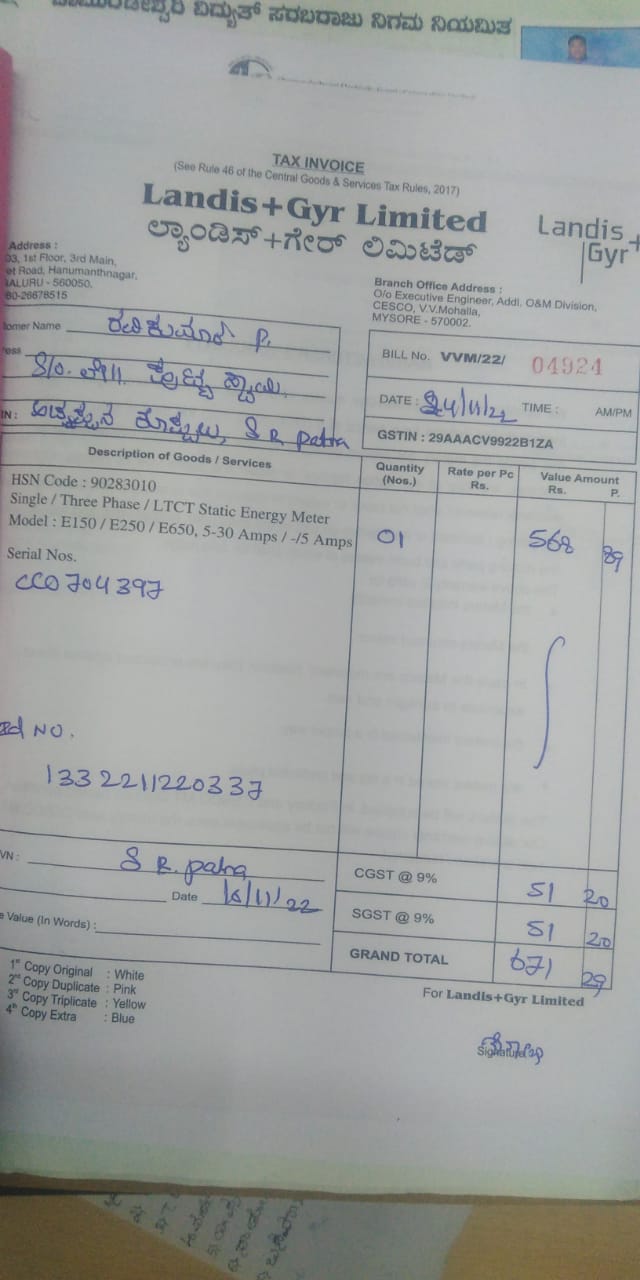 ವಿದ್ಯುತ್ ಸರಬರಾಜು ನಿಗಮ ನಿಯಮಿತ
TAX INVOICE
(See Rule 46 of the Central Goods & Services Tax Rules, 2017)
Landis+Gyr Limited
ಲ್ಯಾಂಡಿಸ್+ಗೇರ್ ಲಿಮಿಟೆಡ್
Landis+
Gyr
Address :
03, 1st Floor, 3rd Main,
et Road, Hanumanthnagar,
ALURU - 560050.
80-26678515
Branch Office Address :
O/o Executive Engineer, Addl. O&M Division,
CESCO, V.V.Mohalla,
MYSORE - 570002.
tomer Name ರವಿಕುಮಾರ್ P.
ress S/o.
IN : S R patna
BILL No. VVM/22/ 04924
DATE : 24/11/22 TIME : AM/PM
GSTIN : 29AAACV9922B1ZA
Description of Goods / Services
Quantity (Nos.)
Rate per Pc Rs.
Value Amount
Rs. P.
HSN Code : 90283010
Single / Three Phase / LTCT Static Energy Meter
Model : E150 / E250 / E650, 5-30 Amps / -/5 Amps 01 568 89
Serial Nos.
CCO704397
NO.
1332211220337
VN : S R. patna
Date 16/11/22
e Value (In Words) :
CGST @ 9% 51 20
SGST @ 9% 51 20
GRAND TOTAL 671 29
1st Copy Original : White
2nd Copy Duplicate : Pink
3rd Copy Triplicate : Yellow
4th Copy Extra : Blue
For Landis+Gyr Limited
Signature